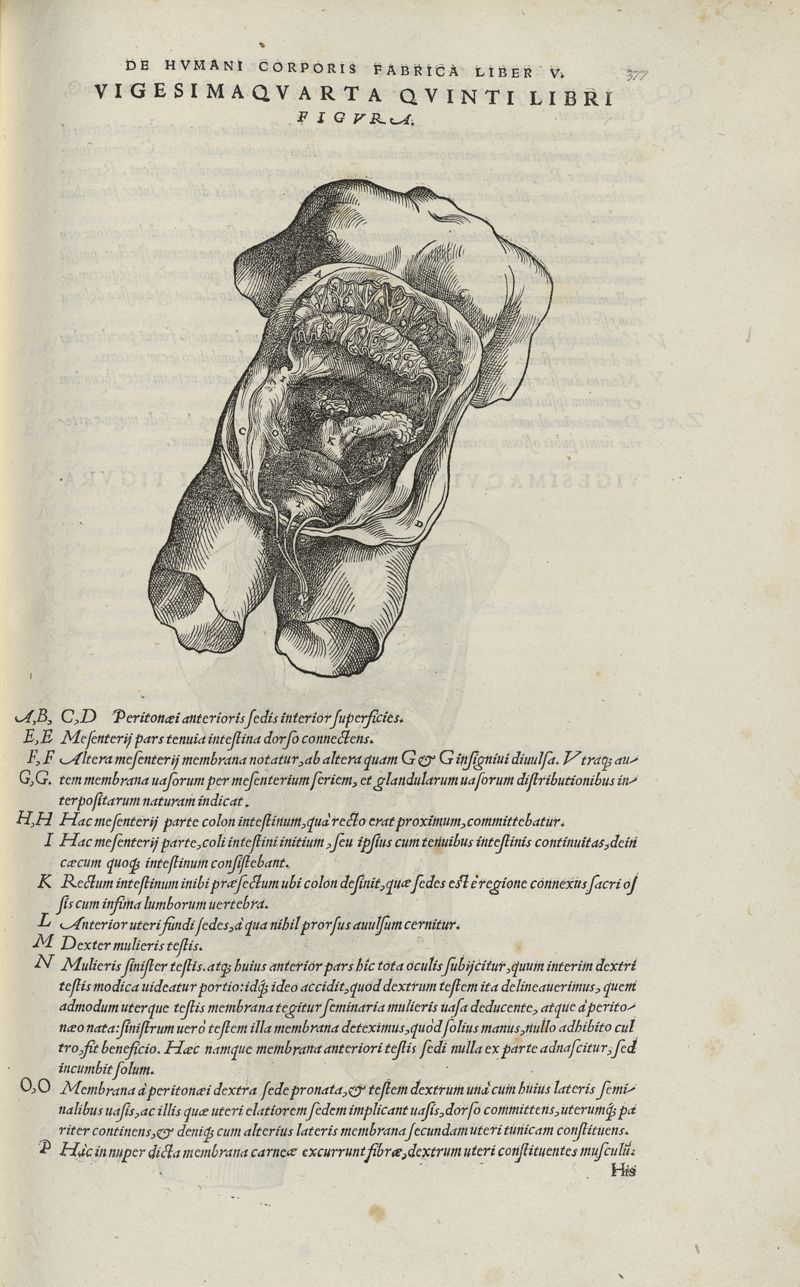 DE HVMANI CORPORIS FABRICA LIBER V. 377
VIGESIMAQVARTA QVINTI LIBRI
FIGVRA.
A
F
G
I
C
O
H
K
L
Y
D
A,B, C,D Peritonæi anterioris ſedis interior ſuperficies.
E,E Meſenterij pars tenuia inteſtina dorſo connectens.
F,F Altera meſenterij membrana notatur, ab altera quam G & G inſigniui diuulſa. Vtraq; au⸗
G,G. tem membrana uaſorum per meſenterium ſeriem, et glandularum uaſorum diſtributionibus in⸗
terpoſitarum naturam indicat.
H,H Hac meſenterij parte colon inteſtinum, quà recto erat proximum, committebatur.
I Hac meſenterij parte, coli inteſtini initium, ſeu ipſius cum tenuibus inteſtinis continuitas, dein
cæcum quoq; inteſtinum conſiſtebant.
K Rectum inteſtinum inibi præſectum ubi colon deſinit, quæ ſedes eſt è regione connexus ſacri oſ
ſis cum infima lumborum uertebra.
L Anterior uteri fundi ſedes, à qua nihil prorſus auulſum cernitur.
M Dexter mulieris teſtis.
N Mulieris ſiniſter teſtis. atq; huius anterior pars hîc tota oculis ſubijcitur, quum interim dextri
teſtis modica uideatur portio: idq; ideo accidit, quod dextrum teſtem ita delineauerimus, quem
admodum uterque teſtis membrana tegitur ſeminaria mulieris uaſa deducente, atque à perito⸗
næo nata: ſiniſtrum uerò teſtem illa membrana deteximus, quod ſolius manus, nullo adhibito cul
tro, fit beneficio. Hæc namque membrana anteriori teſtis ſedi nulla ex parte adnaſcitur, ſed
incumbit ſolum.
O,O Membrana à peritonæi dextra ſede pronata, & teſtem dextrum unà cum huius lateris ſemi⸗
nalibus uaſis, ac illis quæ uteri elatiorem ſedem implicant uaſis, dorſo committens, uterumq; pa
riter continens, & deniq; cum alterius lateris membrana ſecundam uteri tunicam conſtituens.
P Hàc in nuper dicta membrana carneæ excurrunt fibræ, dextrum uteri conſtituentes muſculū.
His